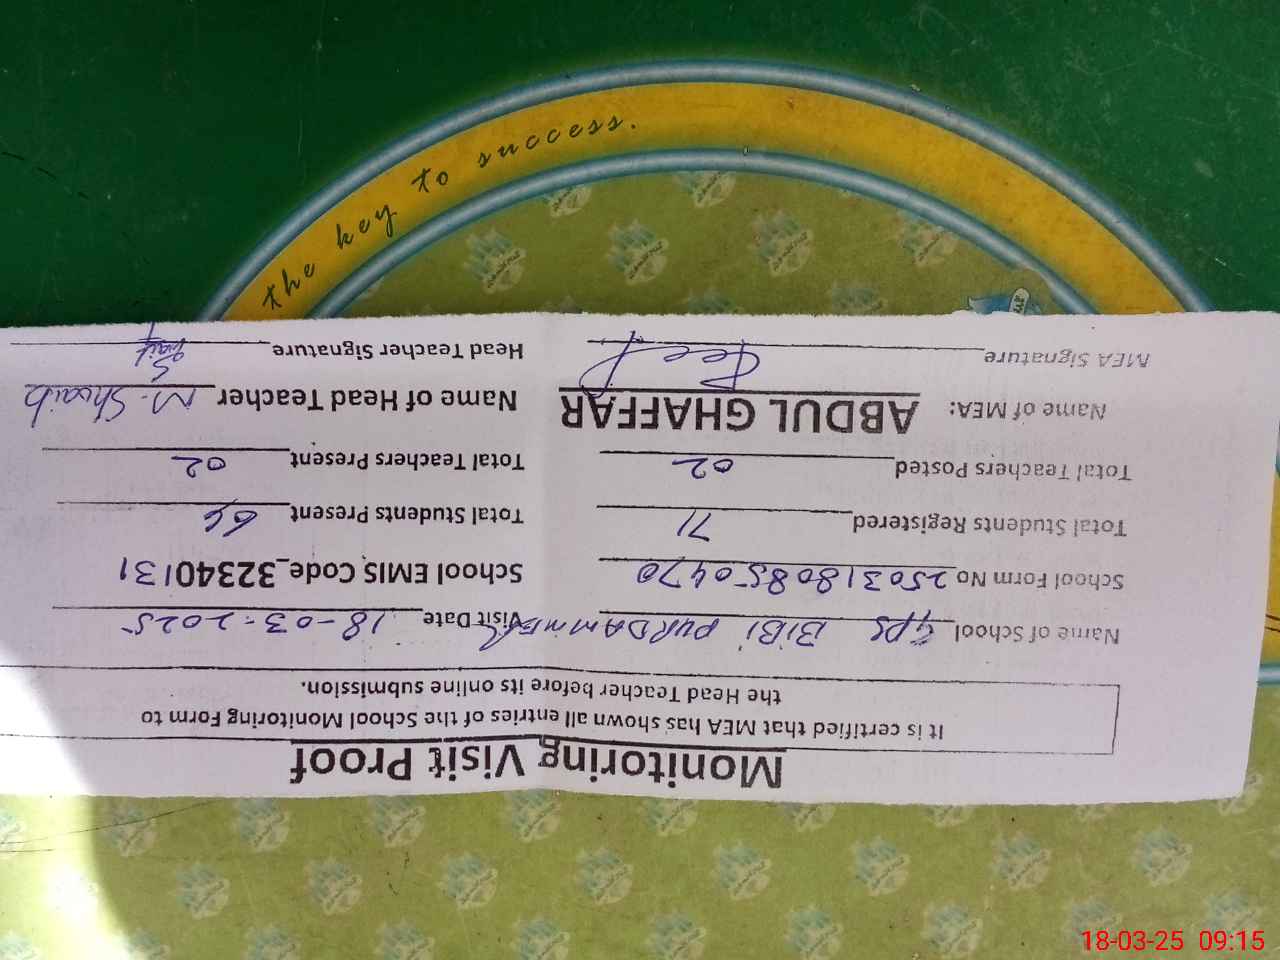 Monitoring Visit Proof
It is certified that MEA has shown all entries of the School Monitoring Form to
the Head Teacher before its online submission.
Name of School GPS BIBI PUR DAMMER Visit Date 18-03-2025
School Form No 25031808550470 School EMIS Code_32340131
Total Students Registered 71 Total Students Present 66
Total Teachers Posted 02 Total Teachers Present 02
Name of MEA: ABDUL GHAFFAR Name of Head Teacher M. Shoaib
MEA Signature Head Teacher Signature
the key to success.
18-03-25 09:15